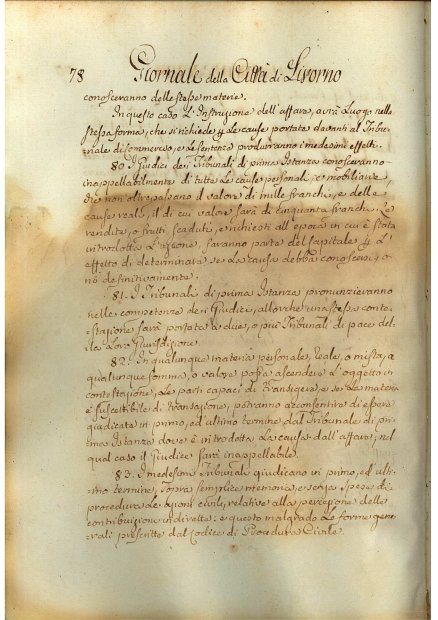 78 Giornale della Città di Livorno
conosceranno delle stesse materie.
In questo caso L'Instruzione dell'affare, avrà Luogo nella
stessa forma, che si richiede p le cause portate davanti al Tribu-
nale di Commercio, e Le Sentenze produrranno i medesimi effetti.
80. I Giudici dei Tribunali di prima Istanza conosceranno
inappellabilmente di tutte Le cause personali, e mobiliari
che non oltrepassano il valore di mille franchi, e delle
cause reali, il di cui valore sarà di Cinquanta franchi. Le
rendite, o frutti scaduti, e richiesti all'epoca in cui è stata
introdotta L'azione, faranno parte del Capitale p L'
effetto di determinare se La causa debba conoscersi, o
nò definitivamente.
81. I Tribunali di prima Istanza pronunzieranno
nelle competenze dei Giudici, allorchè una stessa conte-
stazione sarà portata a due, o più Tribunali di pace del-
la Loro Giurisdizione.
82. In qualunque materia personale, Reale, o mista, a
qualunque somma, o valore possa ascendere L'oggetto in
contestazione, Le parti capaci di transigere, e se La materia
è suscettibile di transazione, potranno acconsentire di essere
giudicate in primo, ed ultimo termine dal Tribunale di pri-
ma Istanza dove è introdotta La causa dall'affare, nel
qual caso il Giudice sarà inappellabile.
83. I medesimi Tribunali giudicano in primo, ed ulti-
mo termine, sopra semplice memoria, e senza spese di
procedura Le azioni civili, relative alla percezione delle
contribuzioni indirette: e questo malgrado Le forme gene-
rali prescritte dal Codice di Procedura Civile.